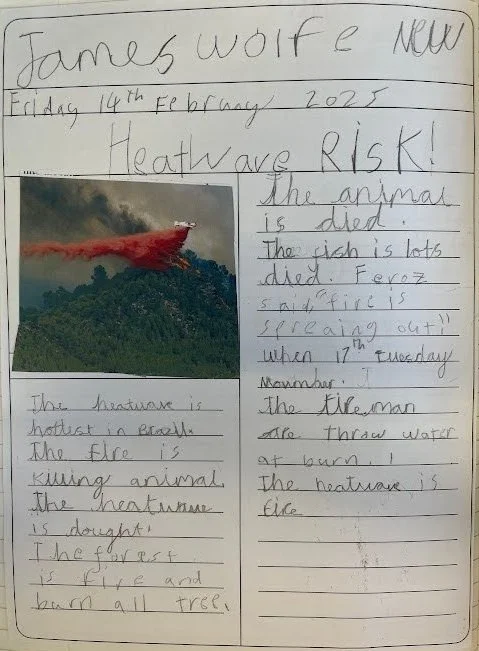 James Wolfe New
Friday 14th February 2025
Heatwave RISK!
The heatwave is
hottest in Brazil.
The fire is
killing animal
The heatwave
is dought.
The forest
is fire and
burn all tree.
The animal
is died.
The fish is lots
died. Feroz
said, "fire is
spreaing out!"
when 17th Tuesday
The fireman
are throw water
at burn. !
The heatwave is
fire